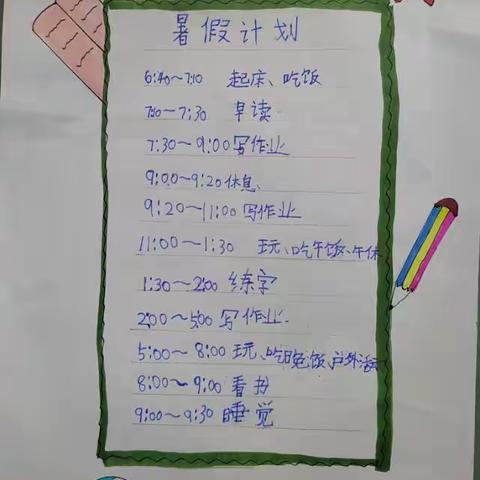 暑假计划
6:40~7:10 起床、吃饭
7:10~7:30 早读
7:30~9:00写作业
9:00~9:20休息、
9:20~11:00写作业
11:00~1:30 玩、吃午饭、午休
1:30~2:00 练字
2:00~5:00 写作业.
5:00~8:00玩、吃晚饭、户外活动
8:00~9:00看书
9:00~9:30睡觉